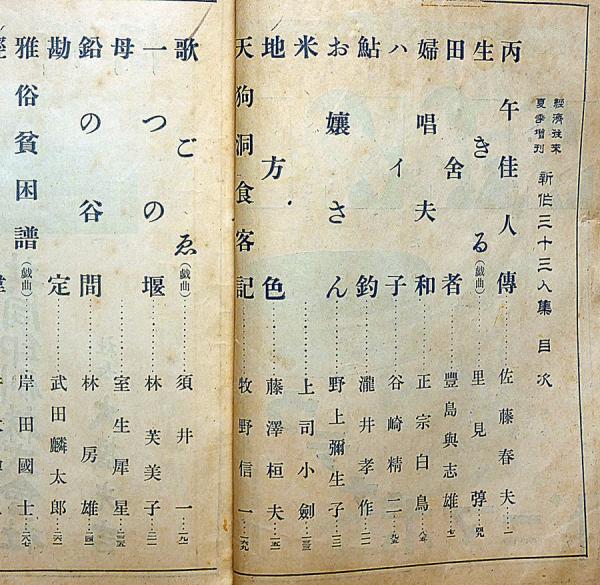 經濟往來
夏季增刊
新作三十三人集 目次
丙午佳人傳……佐藤春夫…一
生きる(戯曲)……里見弴…
田舍者……豐島與志雄…七一
婦唱夫和……正宗白鳥…八五
ハイ子……谷崎精二…九五
鮎釣……瀧井孝作…
お孃さん……野上彌生子…
米……上司小劍…
地方色……藤澤桓夫…一五一
天狗洞食客記……牧野信一…一六九
歌ごゑ(戯曲)……須井一…
一つの堰……林芙美子…
母……室生犀星…二三五
鉛の谷間……林房雄…二四一
勘定……武田麟太郎…二六一
雅俗貧困譜(戯曲)……岸田國士…二六七